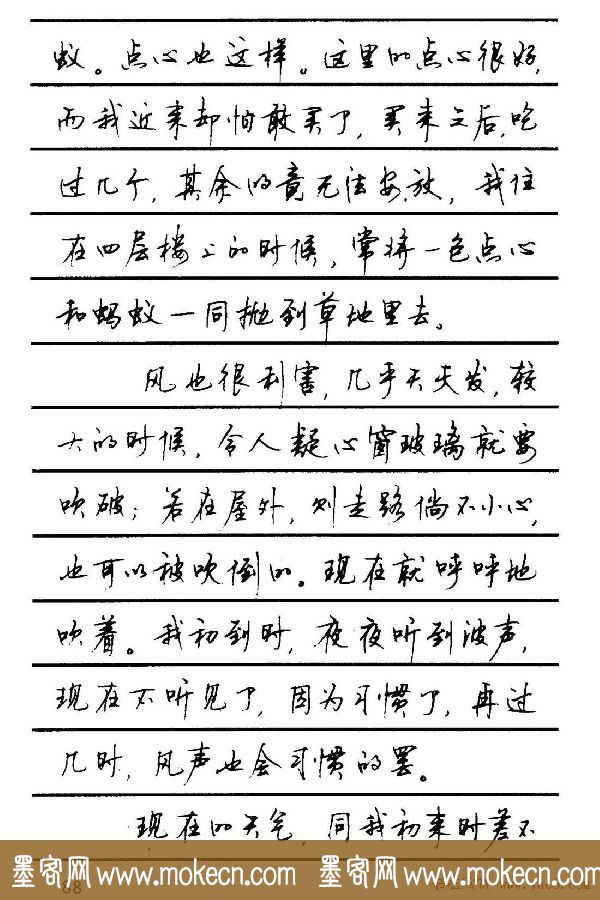 蚁。点心也这样。这里的点心很好,
而我近来却怕敢买了,买来之后,吃
过几个,其余的竟无法安放,我住
在四层楼上的时候,常将一包点心
和蚂蚁一同抛到草地里去。
风也很利害,几乎天天发,较
大的时候,令人疑心窗玻璃就要
吹破;若在屋外,则走路倘不小心,
也可以被吹倒的。现在就呼呼地
吹着。我初到时,夜夜听到波声,
现在不听见了,因为习惯了,再过
几时,风声也会习惯的罢。
现在的天气,同我初来时差不
墨客网 www.mokecn.com 墨客网 www.mokecn.com
68